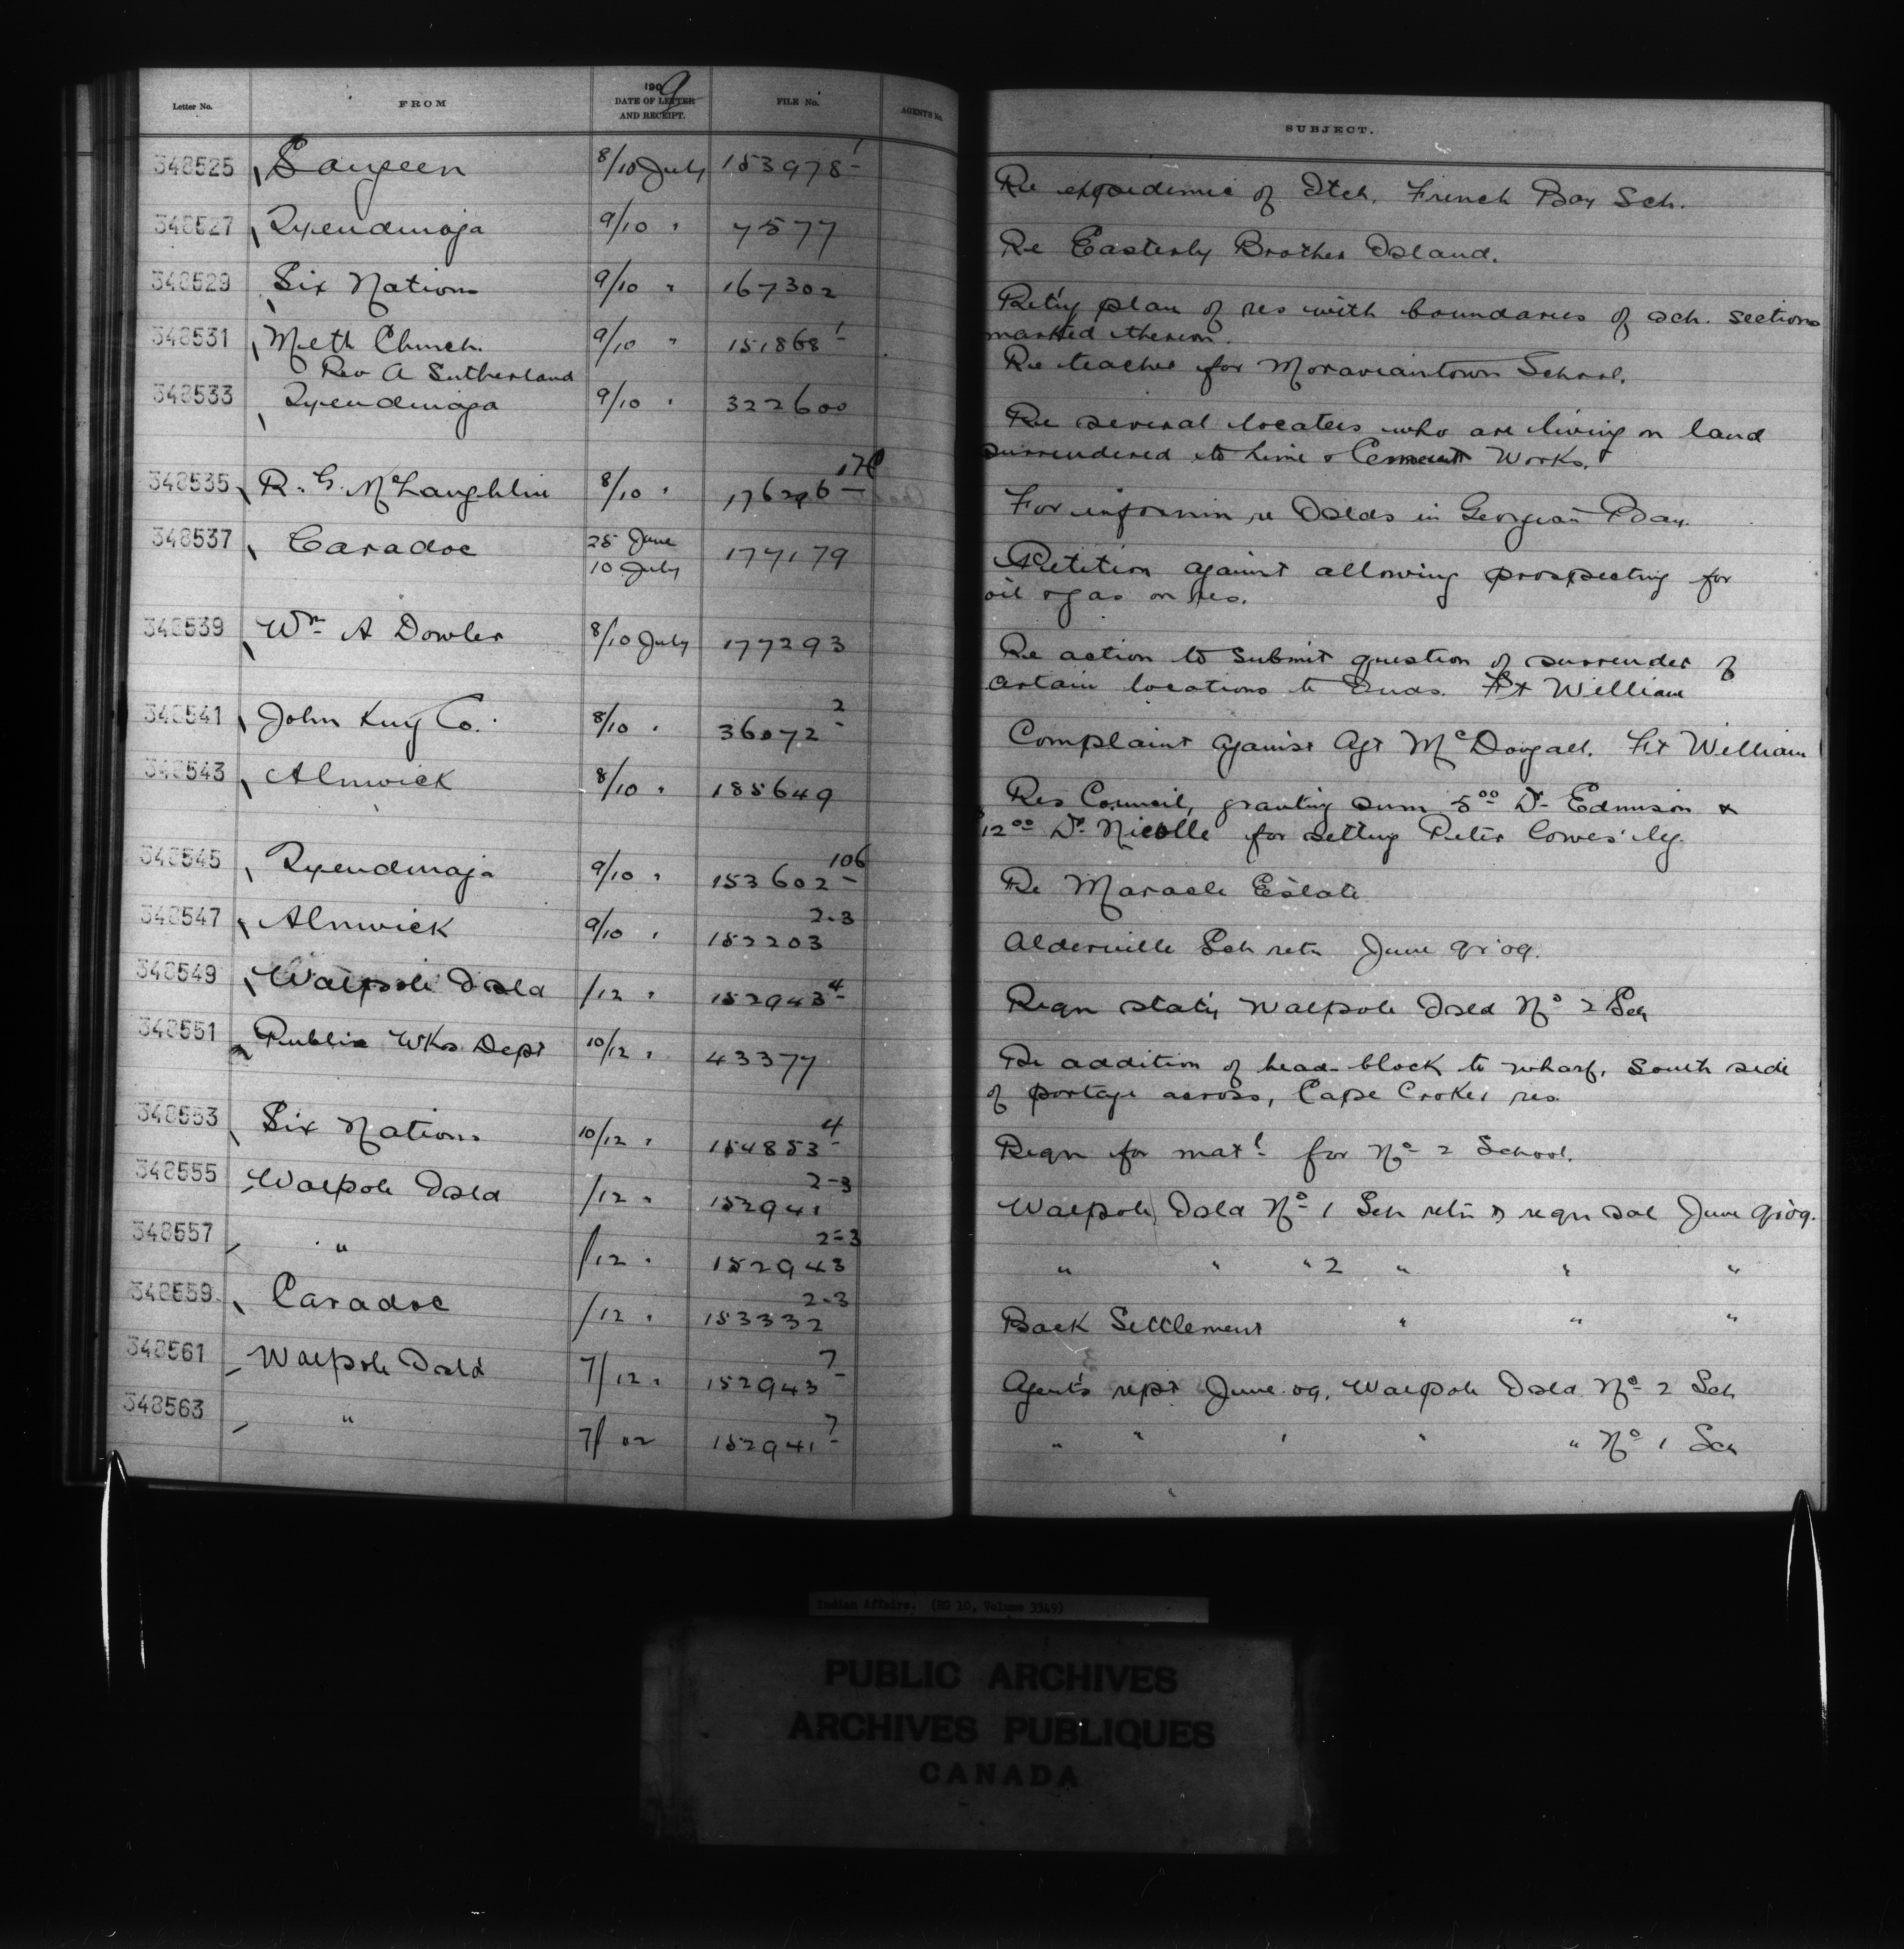 Letter No. FROM 1909 DATE OF LETTER AND RECEIPT. FILE No. AGENT'S No. SUBJECT.
348525 Saugeen 8/10 July 153978-1 Re expedimic of Itch. French Bay Sch.
348527 Tyendinaga 9/10 " 7577 Re Easterly Brother Island.
348529 Six Nations 9/10 " 167302 Ret'g plan of res with boundaries of sch. sections
marked thereon.
348531 Meth Church. 9/10 " 151868-1 Re teacher for Moraviantown School.
Rev A Sutherland
348533 Tyendinaga 9/10 " 322600 Re several locatees who are living on land
surrendered to Lime & Cement Works.
348535 R. G. McLaughlin 8/10 " 176296 For informn re Islds in Georgian Bay.
348537 Caradoc 25 June 177179 Petition against allowing prospecting for
10 July oil & gas on res.
348539 Wm A Dowler 8/10 July 177293 Re action to submit question of surrender of
certain locations to Inds. Ft William
348541 John King Co. 8/10 " 36072-2 Complaint against Agt McDougall. Ft William
348543 Alnwick 8/10 " 185649 Res Council, granting sum 500 Dr Edmison &
12 00 Dr Nicolle for setting Peter Cowes' leg.
348545 Tyendinaga 9/10 " 153602-106 Re Maracle Estate
348547 Alnwick 9/10 " 152203 2-3 Alderville Sch retn June qr 09.
348549 Walpole Isld /12 " 152943-4 Reqn stat'y Walpole Isld No 2 Sch
348551 Public Wks Dept 10/12 " 43377 Re addition of head-block to wharf, South side
of portage across, Cape Croker res.
348553 Six Nations 10/12 " 154853-4 Reqn for matl for No 2 School.
348555 Walpole Isld /12 " 152941 2-3 Walpole Isld No 1 Sch retn & reqn sal June qr 09.
348557 " /12 " 152943 2-3 " " " 2 " " "
348559 Caradoc /12 " 153332 2-3 Back Settlement " " "
348561 Walpole Isld 7/12 " 152943-7 Agent's rept June 09. Walpole Isld No 2 Sch
348563 " 7/ 152941-7 " " " " " No 1 Sch
Indian Affairs. (RG 10, Volume 3349)
PUBLIC ARCHIVES
ARCHIVES PUBLIQUES
CANADA